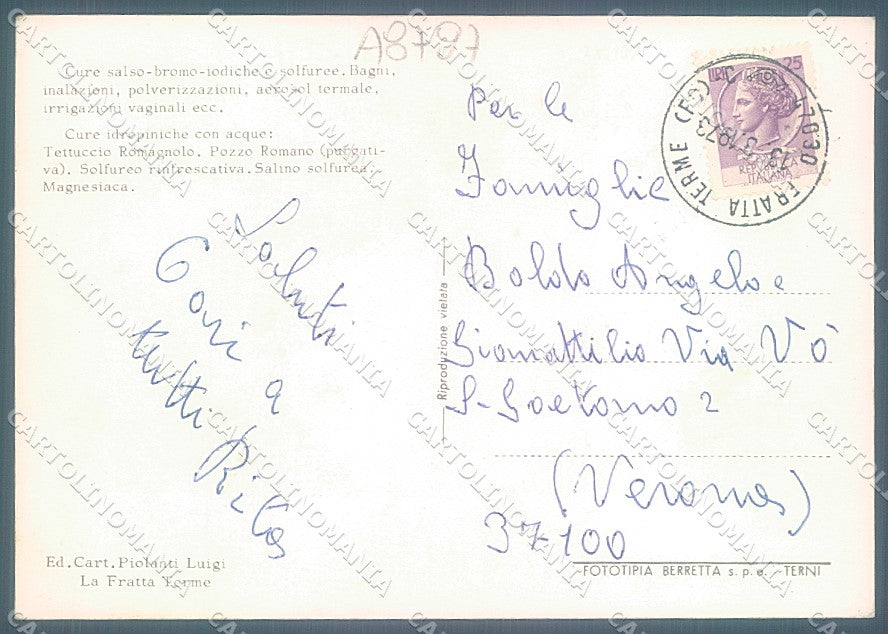 A8797
Cure salso-bromo-iodiche e solfuree. Bagni,
inalazioni, polverizzazioni, aerosol termale,
irrigazioni vaginali ecc.
Cure idropiniche con acque:
Tettuccio Romagnolo. Pozzo Romano (purgati-
va). Solfureo rinfrescativa. Salino solfurea
Magnesiaca.
Saluti
Cari a
tutti Rita
Ed. Cart. Piolanti Luigi
La Fratta Terme
Riproduzione vietata
LIRE 25
REPUBBLICA
ITALIANA
47030 FRATTA TERME (FO)
1973
Per le
Famiglie
Boldo Angelo e
Gianattilio Via Vò
S-Gaetano 2
(Verona)
37100
FOTOTIPIA BERRETTA s.p.a. - TERNI
CARTOLINOMANIA